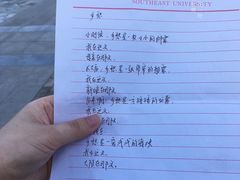 SOUTHEAST UNIVERSITY
乡愁
小时候,乡愁是一枚小小的邮票
我在这头
母亲在那头
长大后,乡愁是一张窄窄的船票
我在这头
新娘在那头
后来啊,乡愁是一方矮矮的坟墓
我在这头
乡愁是一湾浅浅的海峡
我在这头
大陆在那头